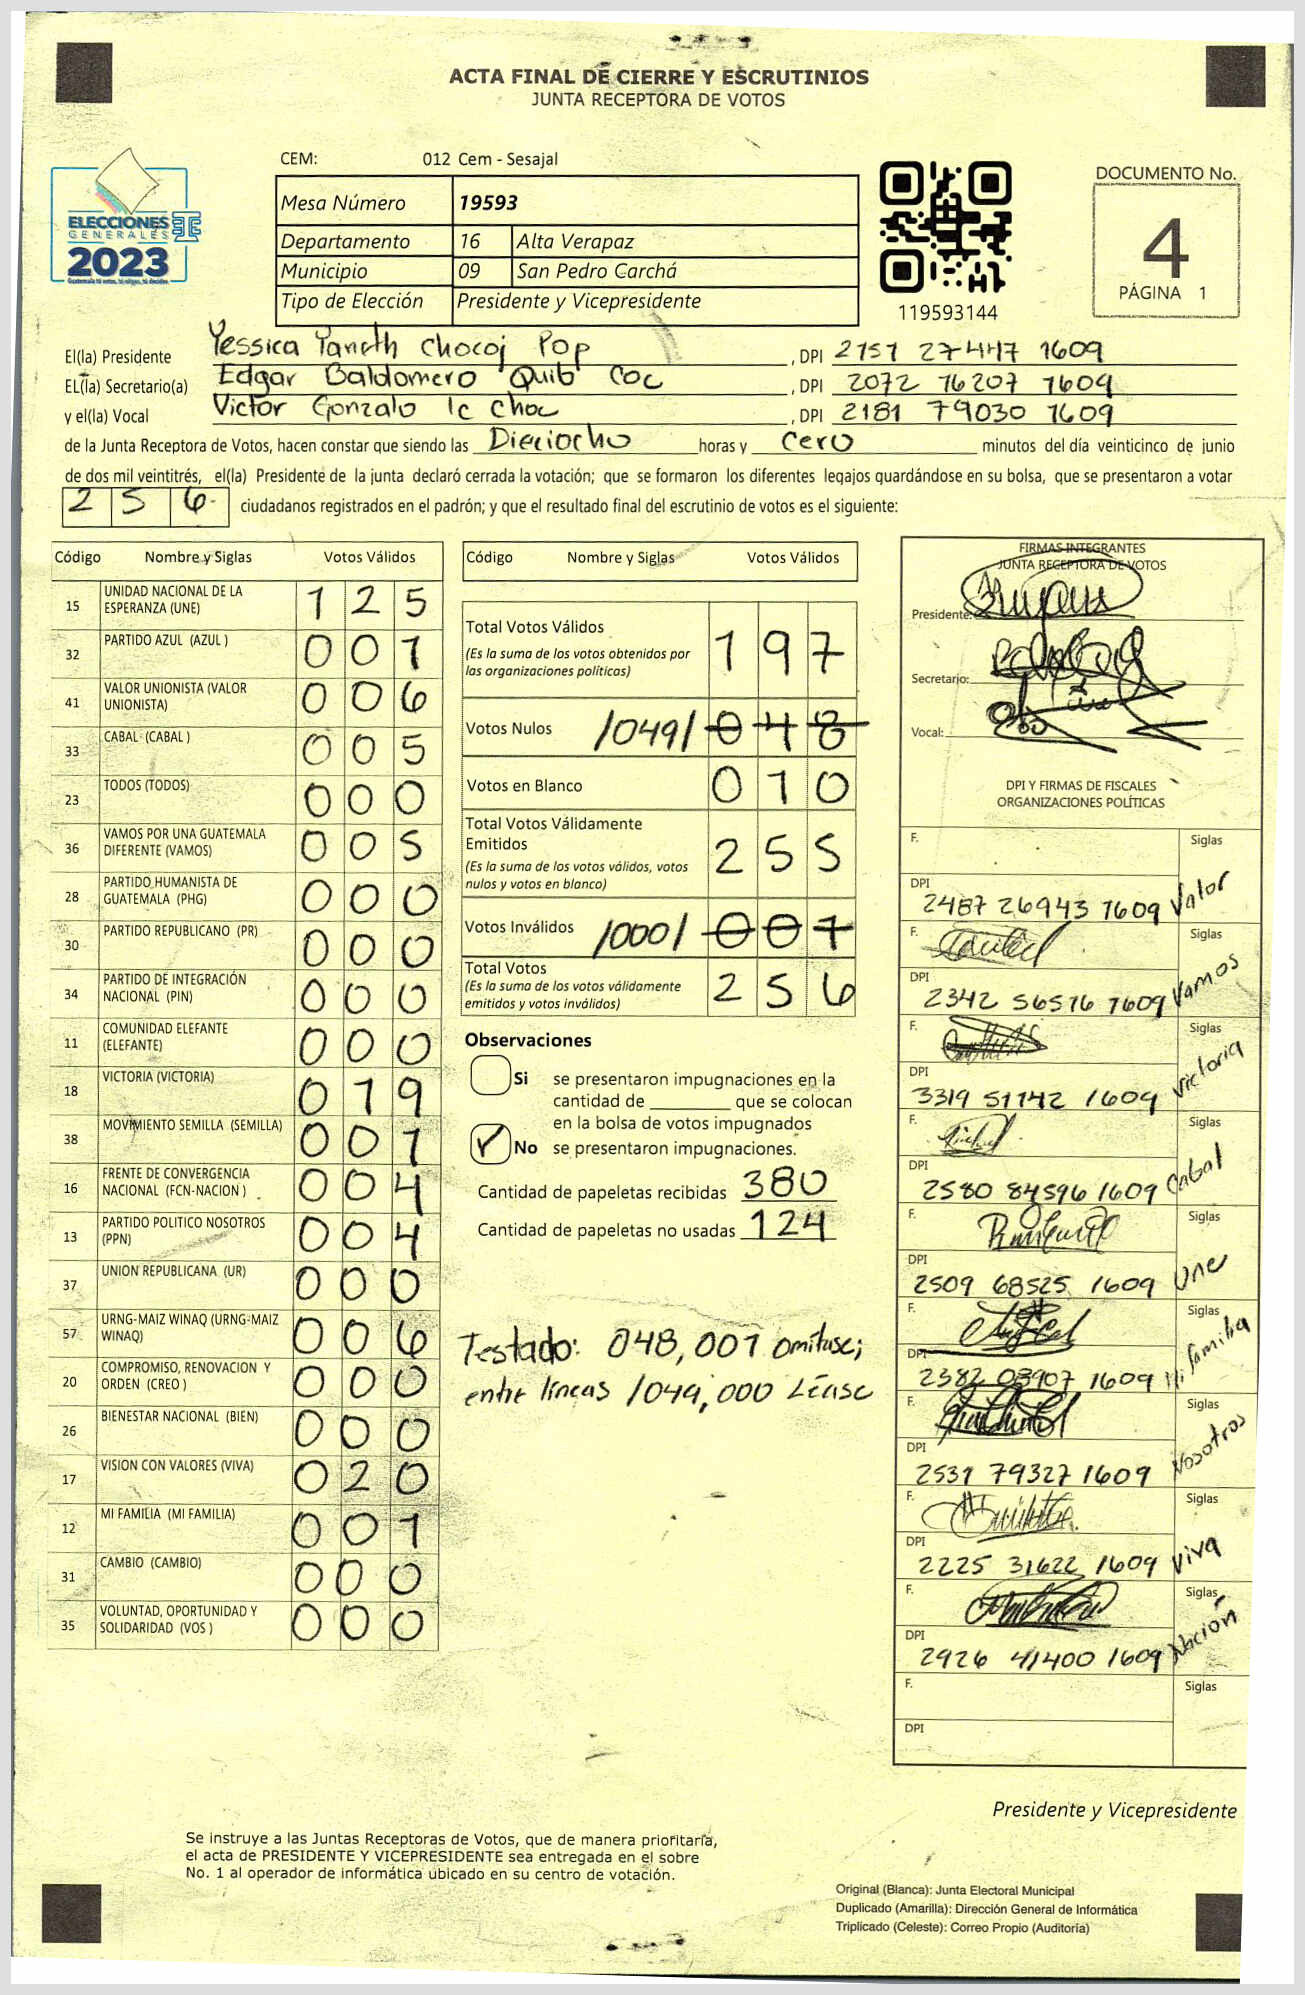 ACTA FINAL DE CIERRE Y ESCRUTINIOS
JUNTA RECEPTORA DE VOTOS
CEM: 012 Cem - Sesajal
ELECCIONES
GENERALES
2023
Mesa Número 19593
Departamento 16 Alta Verapaz
Municipio 09 San Pedro Carchá
Tipo de Elección Presidente y Vicepresidente
119593144
DOCUMENTO No.
4
PÁGINA 1
El(la) Presidente Yessica Yaneth Chocoj Pop, DPI 2151 27447 1609
EL(la) Secretario(a) Edgar Baldomero Quib Coc, DPI 2072 16207 1609
y el(la) Vocal Victor Gonzalo Ic Choc, DPI 2181 79030 1609
de la Junta Receptora de Votos, hacen constar que siendo las Dieciocho horas y cero minutos del día veinticinco de junio
de dos mil veintitrés, el(la) Presidente de la junta declaró cerrada la votación; que se formaron los diferentes legajos guardándose en su bolsa, que se presentaron a votar
256 ciudadanos registrados en el padrón; y que el resultado final del escrutinio de votos es el siguiente:
Código Nombre y Siglas Votos Válidos
15 UNIDAD NACIONAL DE LA ESPERANZA (UNE) 125
32 PARTIDO AZUL (AZUL ) 001
41 VALOR UNIONISTA (VALOR UNIONISTA) 006
33 CABAL (CABAL ) 005
23 TODOS (TODOS) 000
36 VAMOS POR UNA GUATEMALA DIFERENTE (VAMOS) 005
28 PARTIDO HUMANISTA DE GUATEMALA (PHG) 000
30 PARTIDO REPUBLICANO (PR) 000
34 PARTIDO DE INTEGRACIÓN NACIONAL (PIN) 000
11 COMUNIDAD ELEFANTE (ELEFANTE) 000
18 VICTORIA (VICTORIA) 019
38 MOVIMIENTO SEMILLA (SEMILLA) 001
16 FRENTE DE CONVERGENCIA NACIONAL (FCN-NACION ) 004
13 PARTIDO POLITICO NOSOTROS (PPN) 004
37 UNION REPUBLICANA (UR) 000
57 URNG-MAIZ WINAQ (URNG-MAIZ WINAQ) 006
20 COMPROMISO, RENOVACION Y ORDEN (CREO ) 000
26 BIENESTAR NACIONAL (BIEN) 000
17 VISION CON VALORES (VIVA) 020
12 MI FAMILIA (MI FAMILIA) 001
31 CAMBIO (CAMBIO) 000
35 VOLUNTAD, OPORTUNIDAD Y SOLIDARIDAD (VOS ) 000
Código Nombre y Siglas Votos Válidos
Total Votos Válidos 197
(Es la suma de los votos obtenidos por
las organizaciones políticas)
Votos Nulos /049/ 048
Votos en Blanco 010
Total Votos Válidamente
Emitidos 255
(Es la suma de los votos válidos, votos
nulos y votos en blanco)
Votos Inválidos /000/ 001
Total Votos 256
(Es la suma de los votos válidamente
emitidos y votos inválidos)
Observaciones
Si se presentaron impugnaciones en la
cantidad de ________ que se colocan
en la bolsa de votos impugnados
No se presentaron impugnaciones.
Cantidad de papeletas recibidas 380
Cantidad de papeletas no usadas 124
Testado: 048, 001 omitase;
entre líneas /049, 000 Léase
FIRMAS INTEGRANTES
JUNTA RECEPTORA DE VOTOS
Presidente:
Secretario:
Vocal:
DPI Y FIRMAS DE FISCALES
ORGANIZACIONES POLÍTICAS
F. Siglas
DPI 2487 26943 1609 Valor
F. Siglas
DPI 2342 56576 1609 Vamos
F. Siglas
DPI 3319 51142 1609 Victoria
F. Siglas
DPI 2580 84596 1609 Cabal
F. Siglas
DPI 2509 68525 1609 Une
F. Siglas
DPI 2382 03907 1609 Mi familia
F. Siglas
DPI 2531 79327 1609 Nosotros
F. Siglas
DPI 2225 31622 1609 Viva
F. Siglas
DPI 2926 41400 1609 Nación
F. Siglas
DPI
Presidente y Vicepresidente
Se instruye a las Juntas Receptoras de Votos, que de manera prioritaria,
el acta de PRESIDENTE Y VICEPRESIDENTE sea entregada en el sobre
No. 1 al operador de informática ubicado en su centro de votación.
Original (Blanca): Junta Electoral Municipal
Duplicado (Amarilla): Dirección General de Informática
Triplicado (Celeste): Correo Propio (Auditoría)